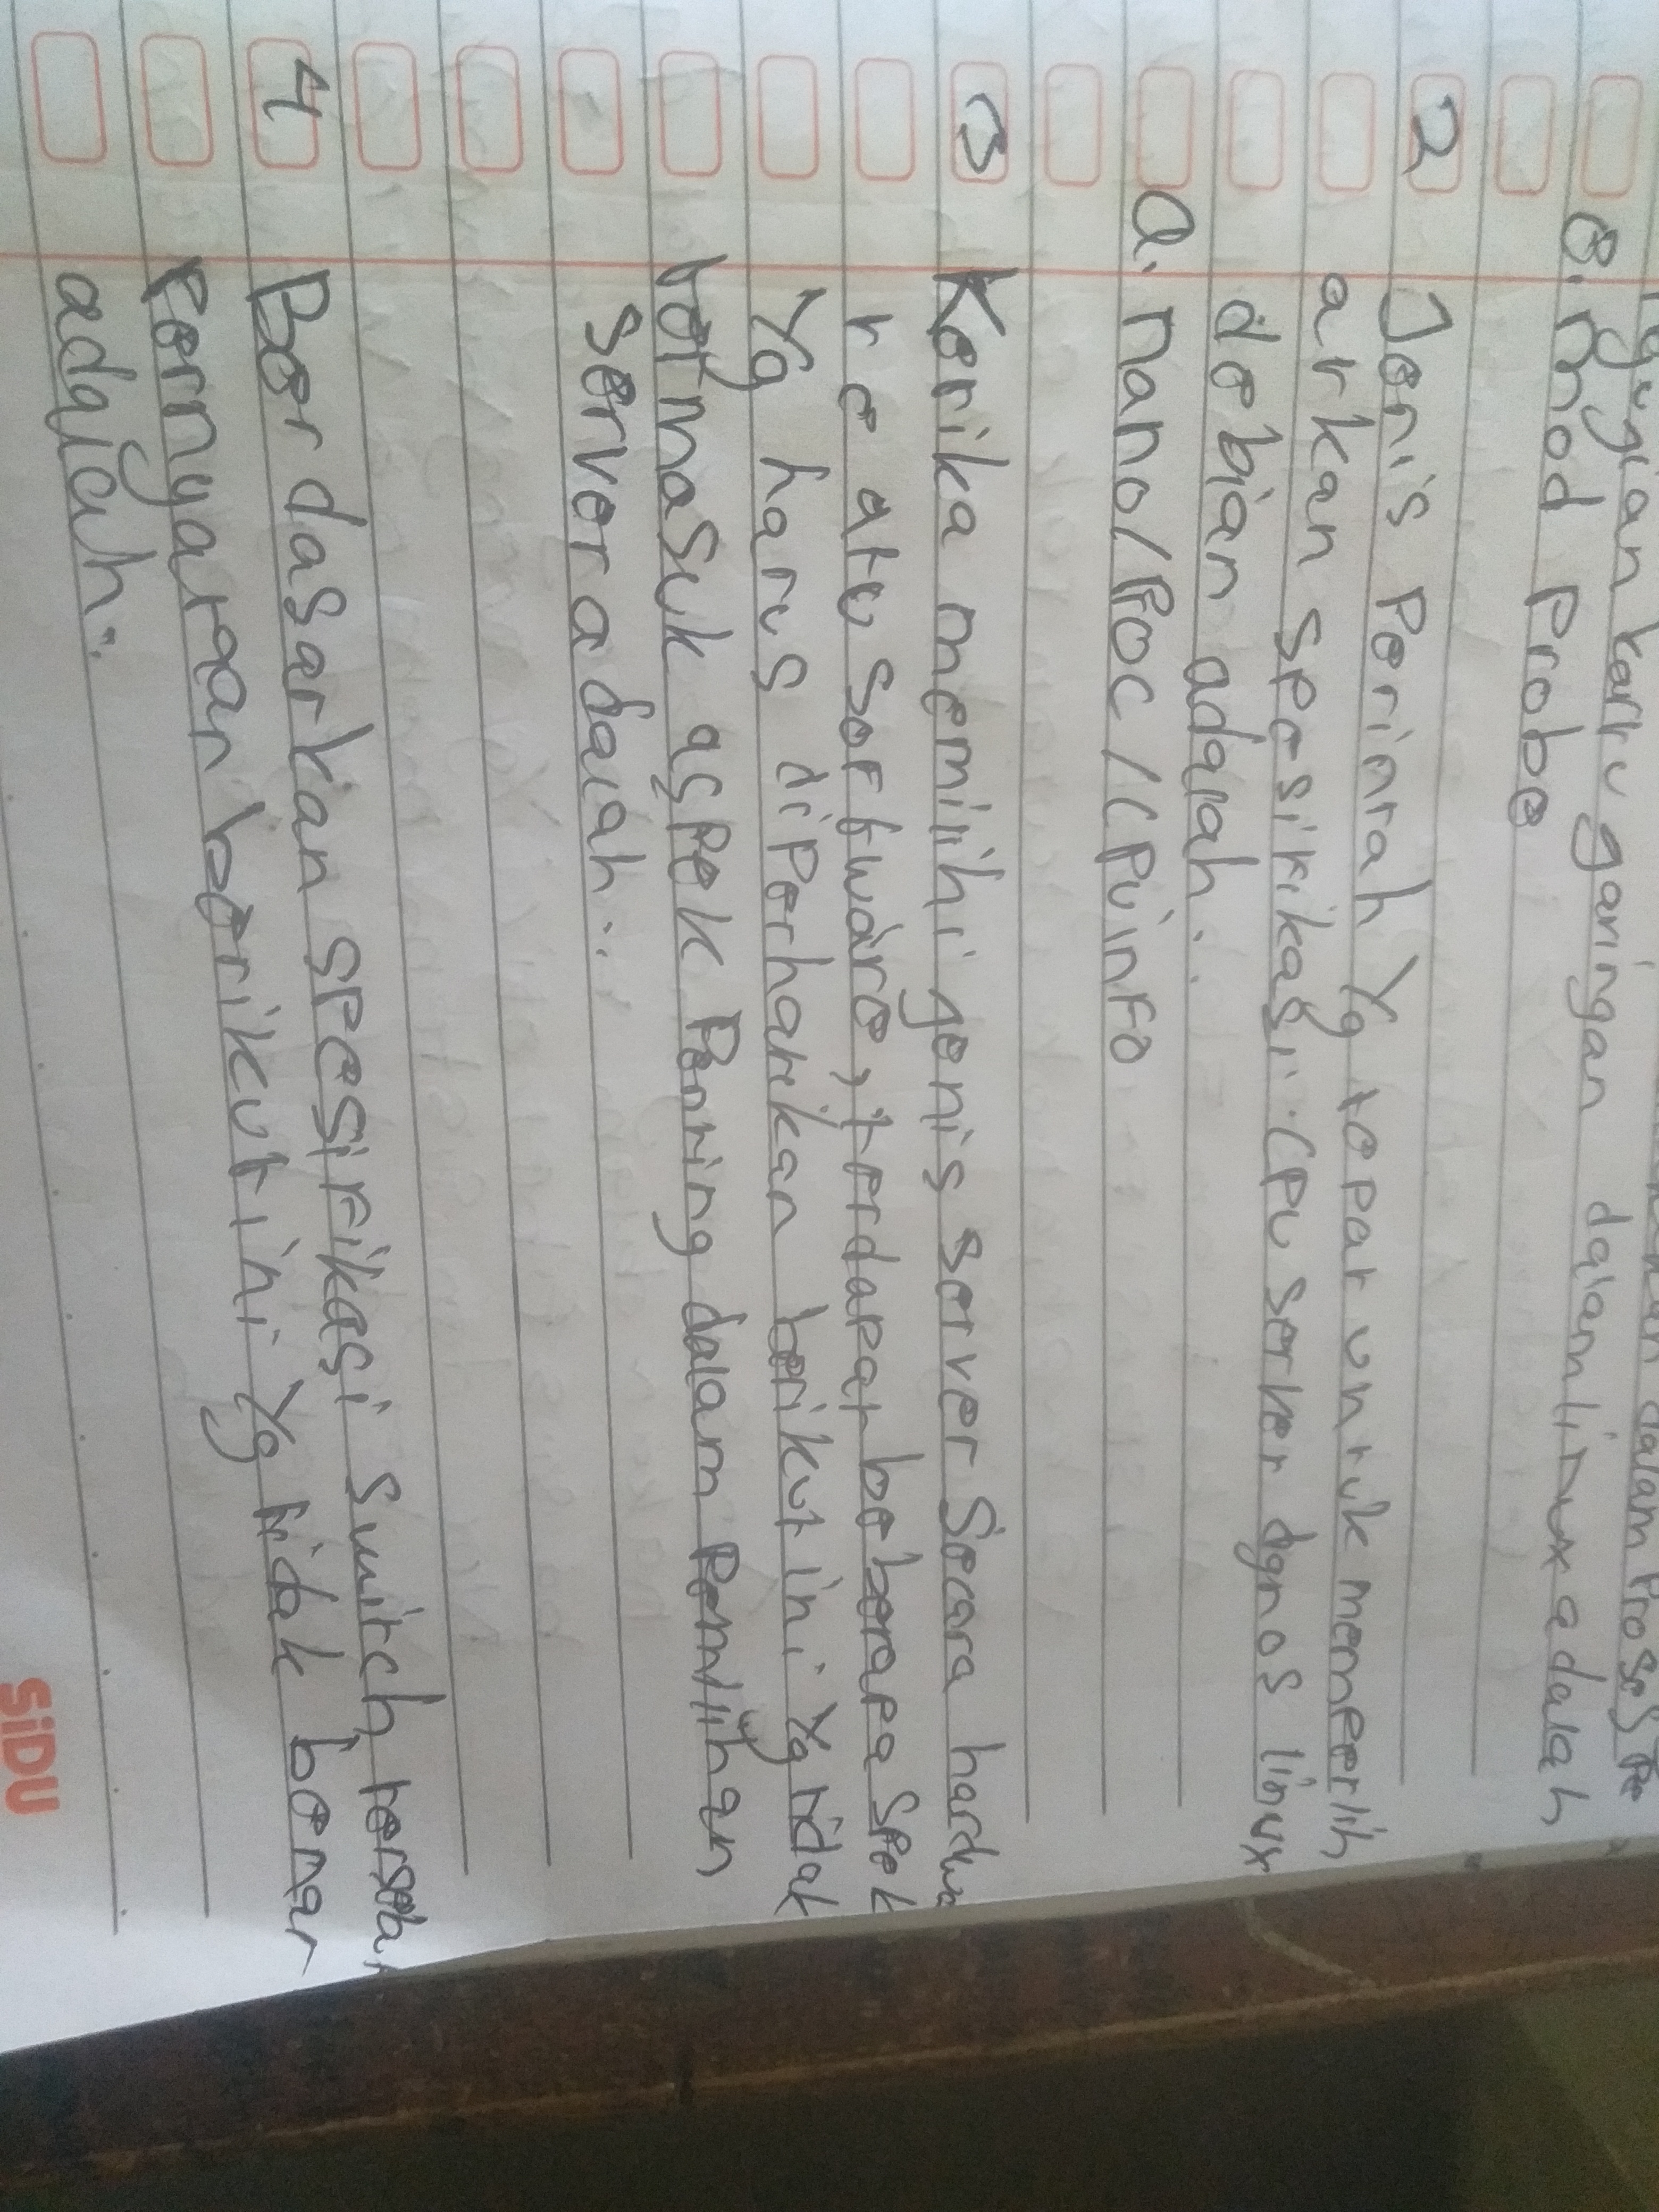 dalam Proses Pe
ngujian kartu jaringan dalam linux adalah
B. mod Probe
2 Jenis Perintah Yg tepat untuk memperlih
atkan spesifikasi CPU server dgn os linux
debian adalah:
a. nano/Proc/CPuinFo
3 Ketika memilihi jenis server Secara hardwa
re atu software, terdapat beberapa spek
Yg harus diPerhatikan berikut ini Yg tidak
termasuk aspek Penting dalam Pemilihan
server adalah:
4 Berdasarkan spesifikasi switch tersebut
Pernyataan berikut ini Yg tidak benar
adalah:
SiDU